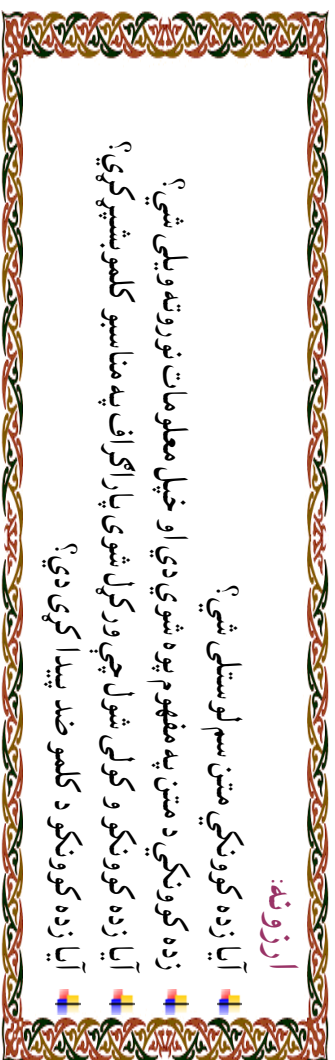 ارزونه:
آیا زده کوونکي متن سم لوستلی شي؟
زده کوونکي د متن په مفهوم پوه شوي دي او خپل معلومات نورو ته ویلی شي؟
آیا زده کوونکو و کولی شول چې ور کړل شوی پاراګراف په مناسبو کلمو بشپړ کړي؟
آیا زده کوونکو د کلمو ضد پیدا کړی دی؟